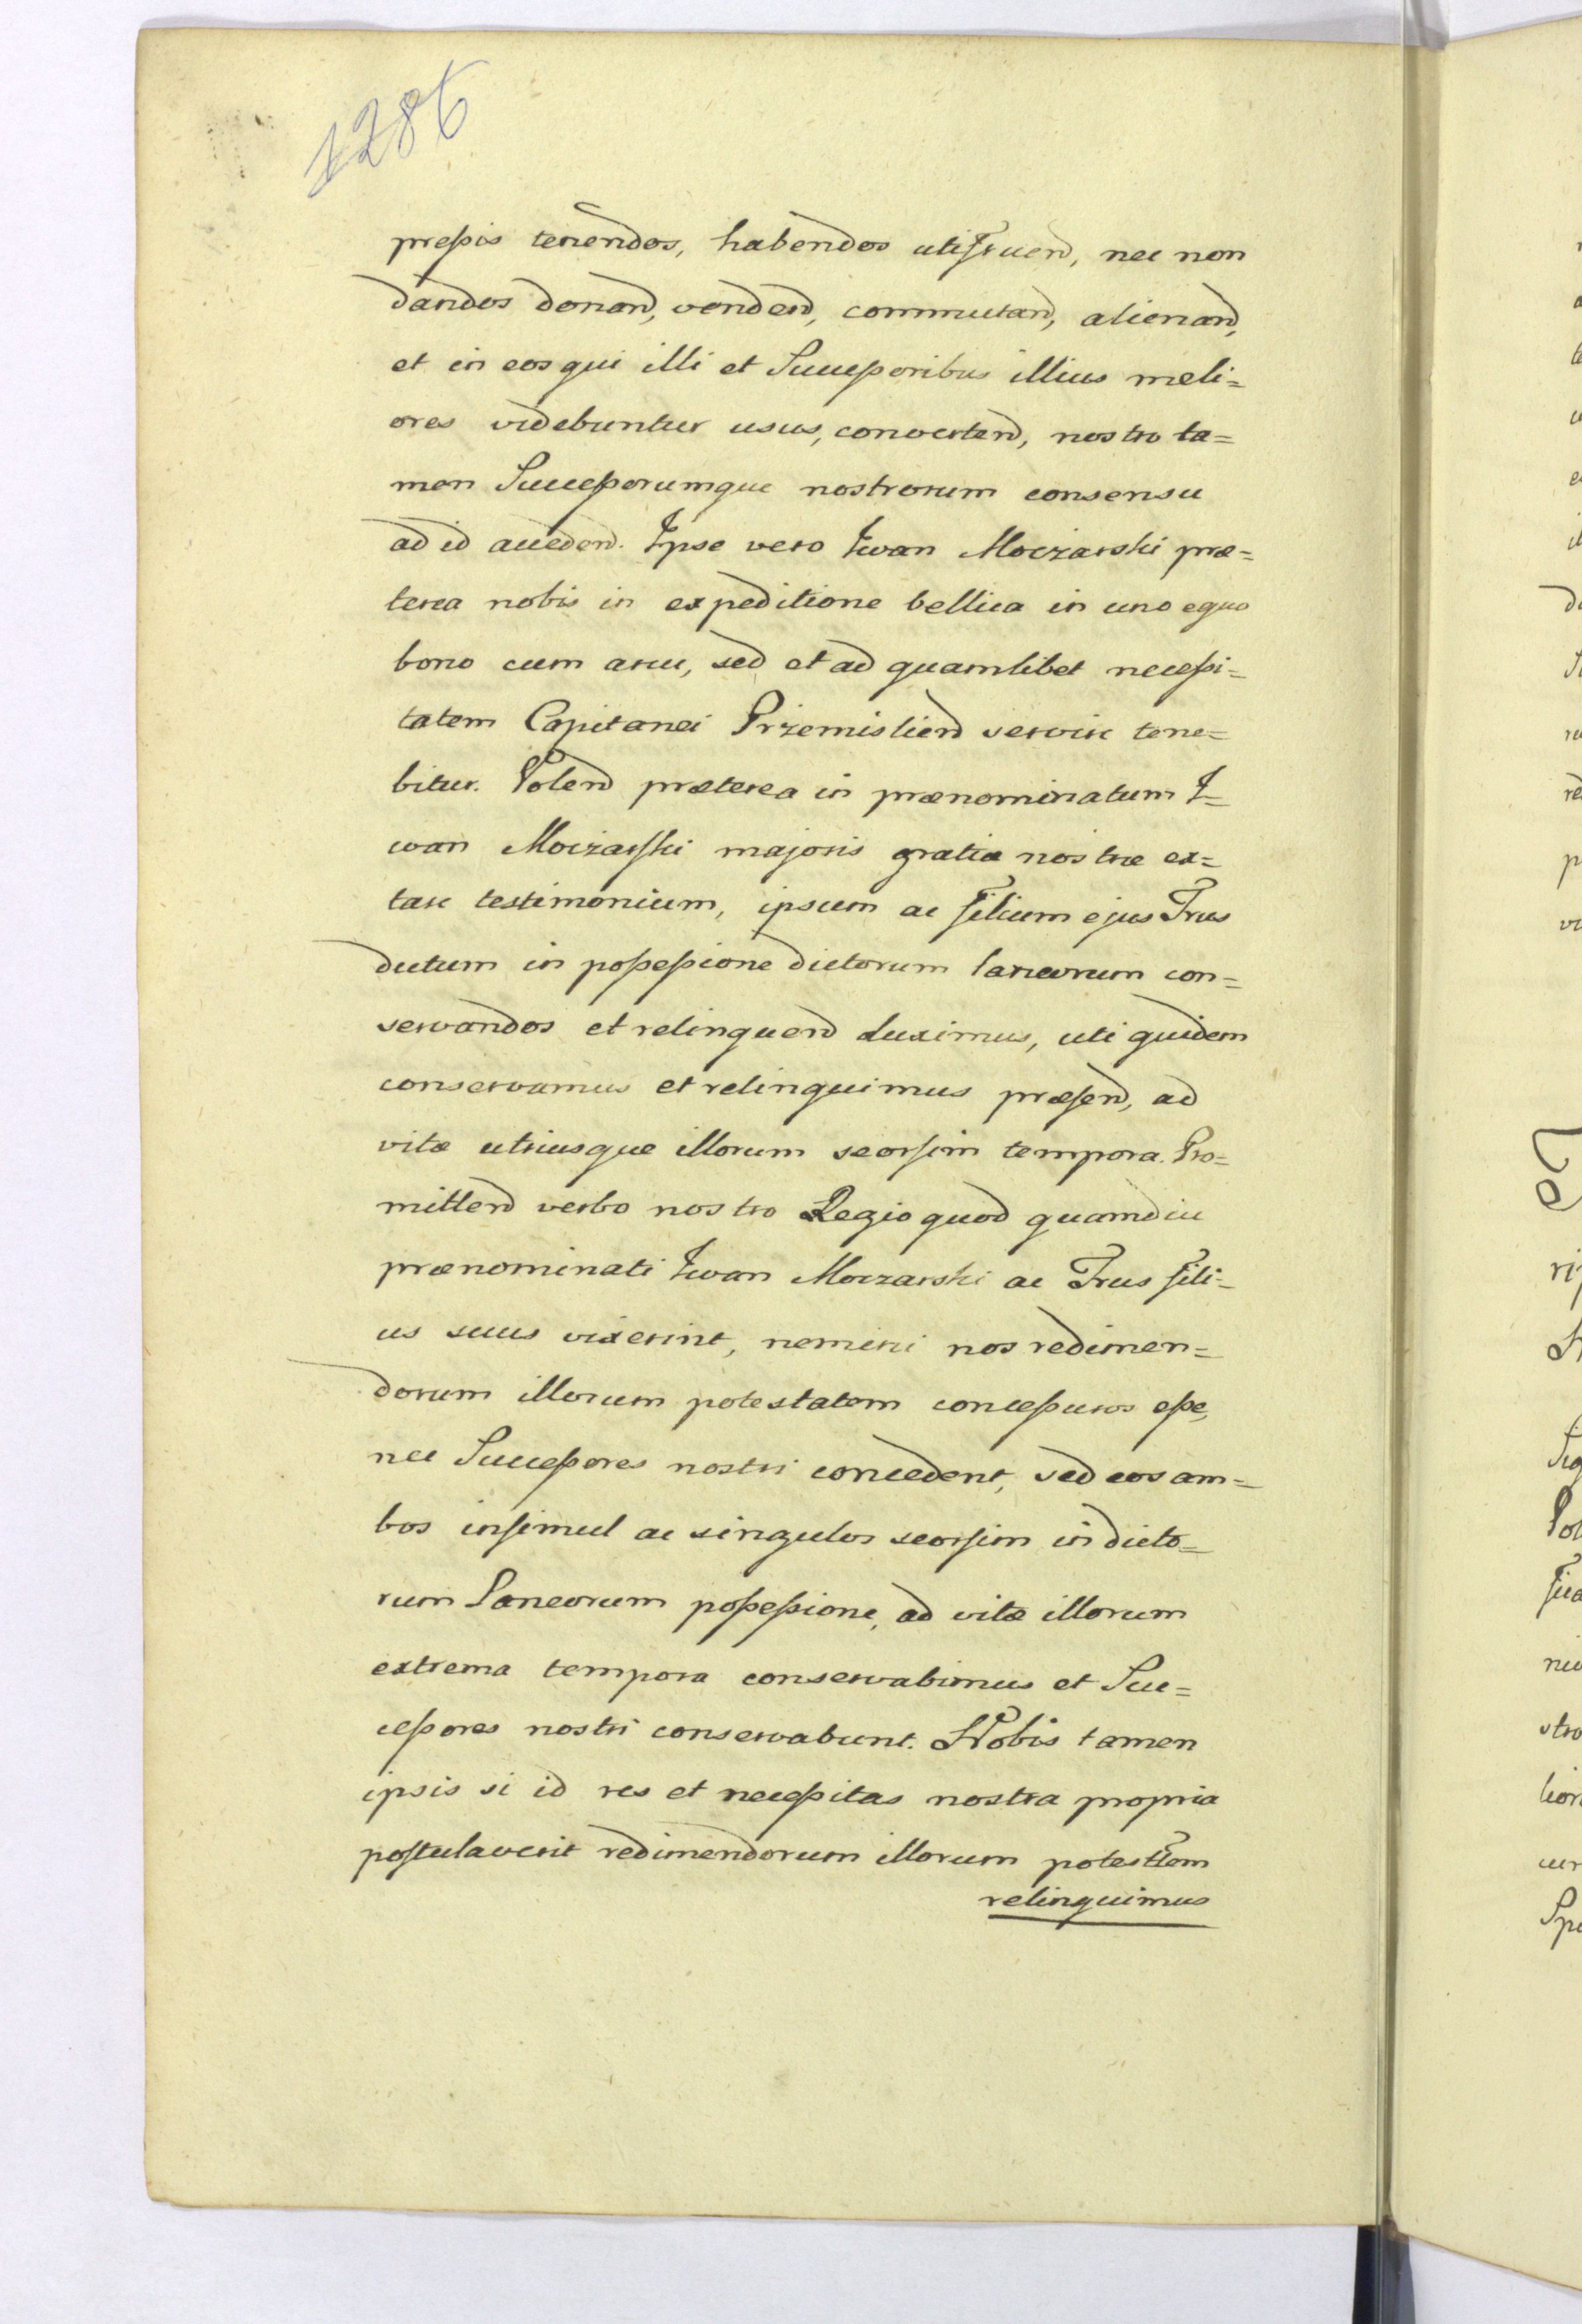 1286
preßis tenendos, habendos utifruend, nec non
dandos donand, vendend, commutand, alienand,
et in eos qui illi et Succeßoribus illius meli=
ores videbuntur usus, convertend, nostro ta=
men Succeßorumque nostrorum consensu
ad id accedend. Ipse vero Iwan Moczarski præ=
terea nobis in expeditione bellica in uno equo
bono cum arcu, sed et ad quamlibet neceßi=
tatem Capitanei Przemislien servire tene=
bitur. Volend præterea in prænominatum I=
wan Moczarski majoris gratiæ nostræ ex=
tare testimonium, ipsum ac filium ejus Irus
dictum in poßeßione dictorum laneorum con=
servandos et relinquend duximus, uti quidem
conservamus et relinquimus præsend, ad
vitæ utriusque illorum seorsim tempora. Pro=
mittend verbo nostro Regio quod quamdiu
prænominati Iwan Moczarski ac Irus fili=
us suus vixerint, nemini nos redimen=
dorum illorum potestatem conceßuros eße,
nec Succeßores nostri concedent, sed eos am=
bos insimul ac singulos seorsim in dicto=
rum Laneorum poßeßione, ad vitæ illorum
extrema tempora conservabimus et Suc=
ceßores nostri conservabunt. Nobis tamen
ipsis si id res et neceßitas nostra propria
postulaverit redimendorum illorum potesttem
relinquimus